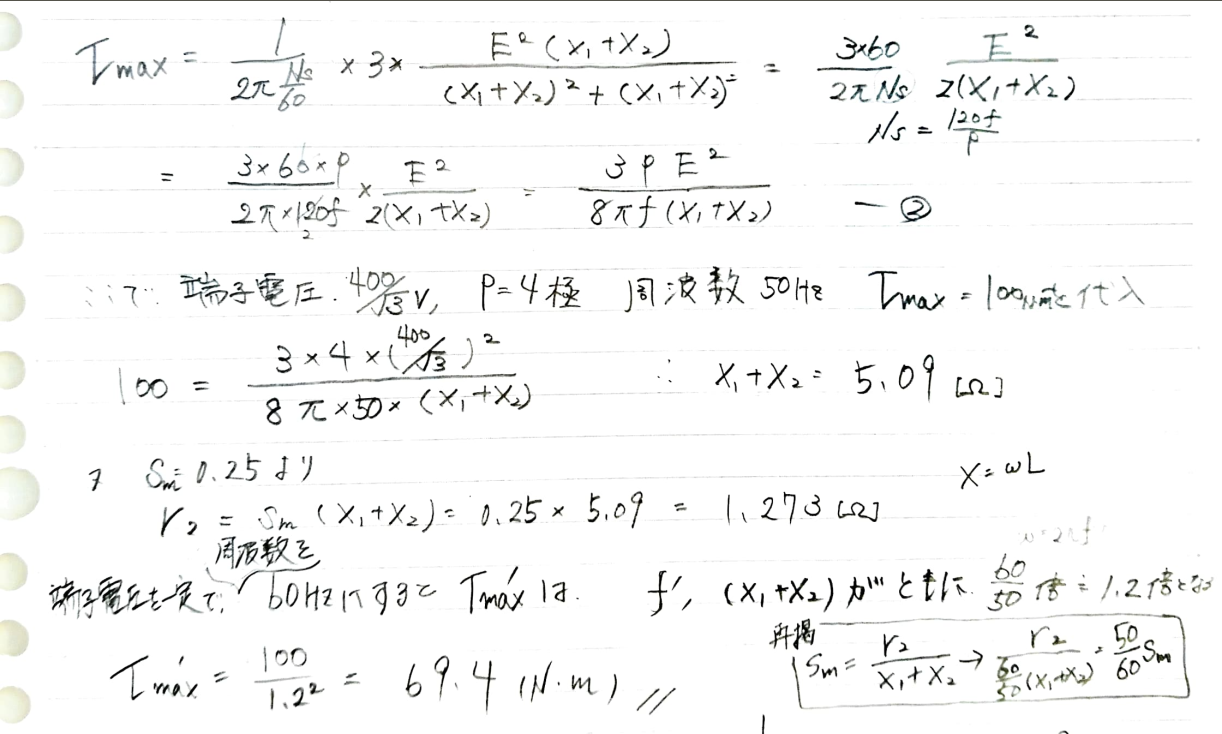 Tmax = 1/(2π Ns/60) × 3 × E²(X₁+X₂)/((X₁+X₂)²+(X₁+X₂)²) = 3×60/(2πNs) E²/(2(X₁+X₂))
Ns = 120f/P
= 3×60×P/(2π×120f) × E²/(2(X₁+X₂)) = 3PE²/(8πf(X₁+X₂)) ー②
ここで 端子電圧 400/√3 V, P=4極 周波数 50Hz Tmax = 100N·mを代入
100 = 3×4×(400/√3)²/(8π×50×(X₁+X₂)) ∴ X₁+X₂ = 5.09 [Ω]
Sm=0.25より X=ωL
r₂ = Sm(X₁+X₂) = 0.25×5.09 = 1.273 [Ω]
ω=2πf
周波数を
端子電圧を一定で, 60Hzにすると T'maxは. f', (X₁+X₂)がともに 60/50倍=1.2倍となる
再掲
Sm = r₂/(X₁+X₂) → r₂/(60/50(X₁+X₂)) = 50/60 Sm
T'max = 100/1.2² = 69.4 (N·m) //